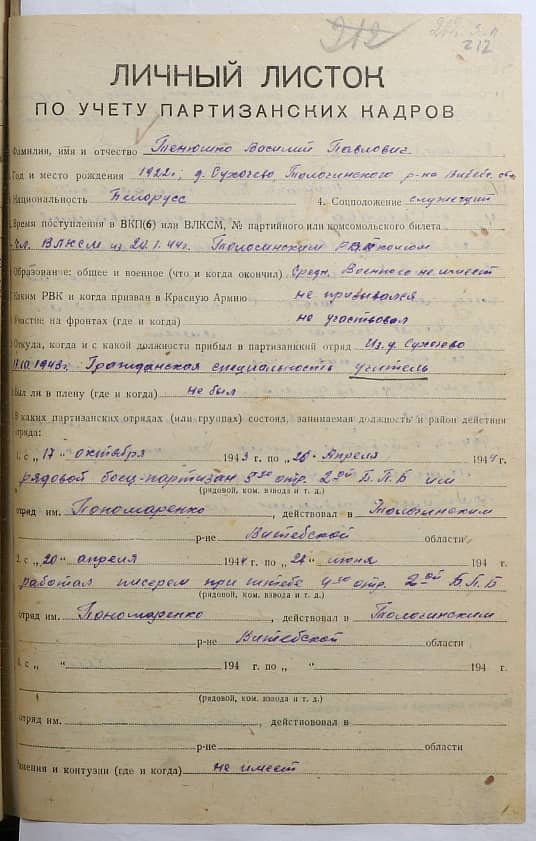 212
212
ЛИЧНЫЙ ЛИСТОК
ПО УЧЕТУ ПАРТИЗАНСКИХ КАДРОВ
Фамилия, имя и отчество Тенюшко Василий Павлович
Год и место рождения 1922 г; д. Сухочево Толочинского р-на Витеб. обл
Национальность Белорусс 4. Соцположение служащий
Время поступления в ВКП(б) или ВЛКСМ, № партийного или комсомольского билета
чл. ВЛКСМ из 20.1.44 г. Толочинским
Образование: общее и военное (что и когда окончил) Средн. Военного не имеет
Каким РВК и когда призван в Красную Армию не призывался
Участие на фронтах (где и когда) не участвовал
Откуда, когда и с какой должности прибыл в партизанский отряд Из д. Сухочево
17.10.1943 г. Гражданская специальность учитель
Был ли в плену (где и когда) не был
В каких партизанских отрядах (или группах) состоял, занимаемая должность и район действия
отряда:
1. с „17" октября 1943 г. по „20" Апреля 1944 г.
рядовой боец-партизан отр. 2ой Б.П.Б им
(рядовой, ком. взвода и т. д.)
отряд им. Пономаренко, действовал в Толочинским
р-не Витебской области
2. с „20" апреля 1944 г. по „24" июня 194 г.
работал писерем при штебе отр. 2ой Б.П.Б
(рядовой, ком. взвода и т. д.)
отряд им. Пономаренко, действовал в Толочинским
р-не Витебской области
с „ " 194 г. по „ " 194 г.
(рядовой, ком. взвода и т. д.)
отряд им. , действовал в
р-не области
Ранения и контузии (где и когда) не имеет